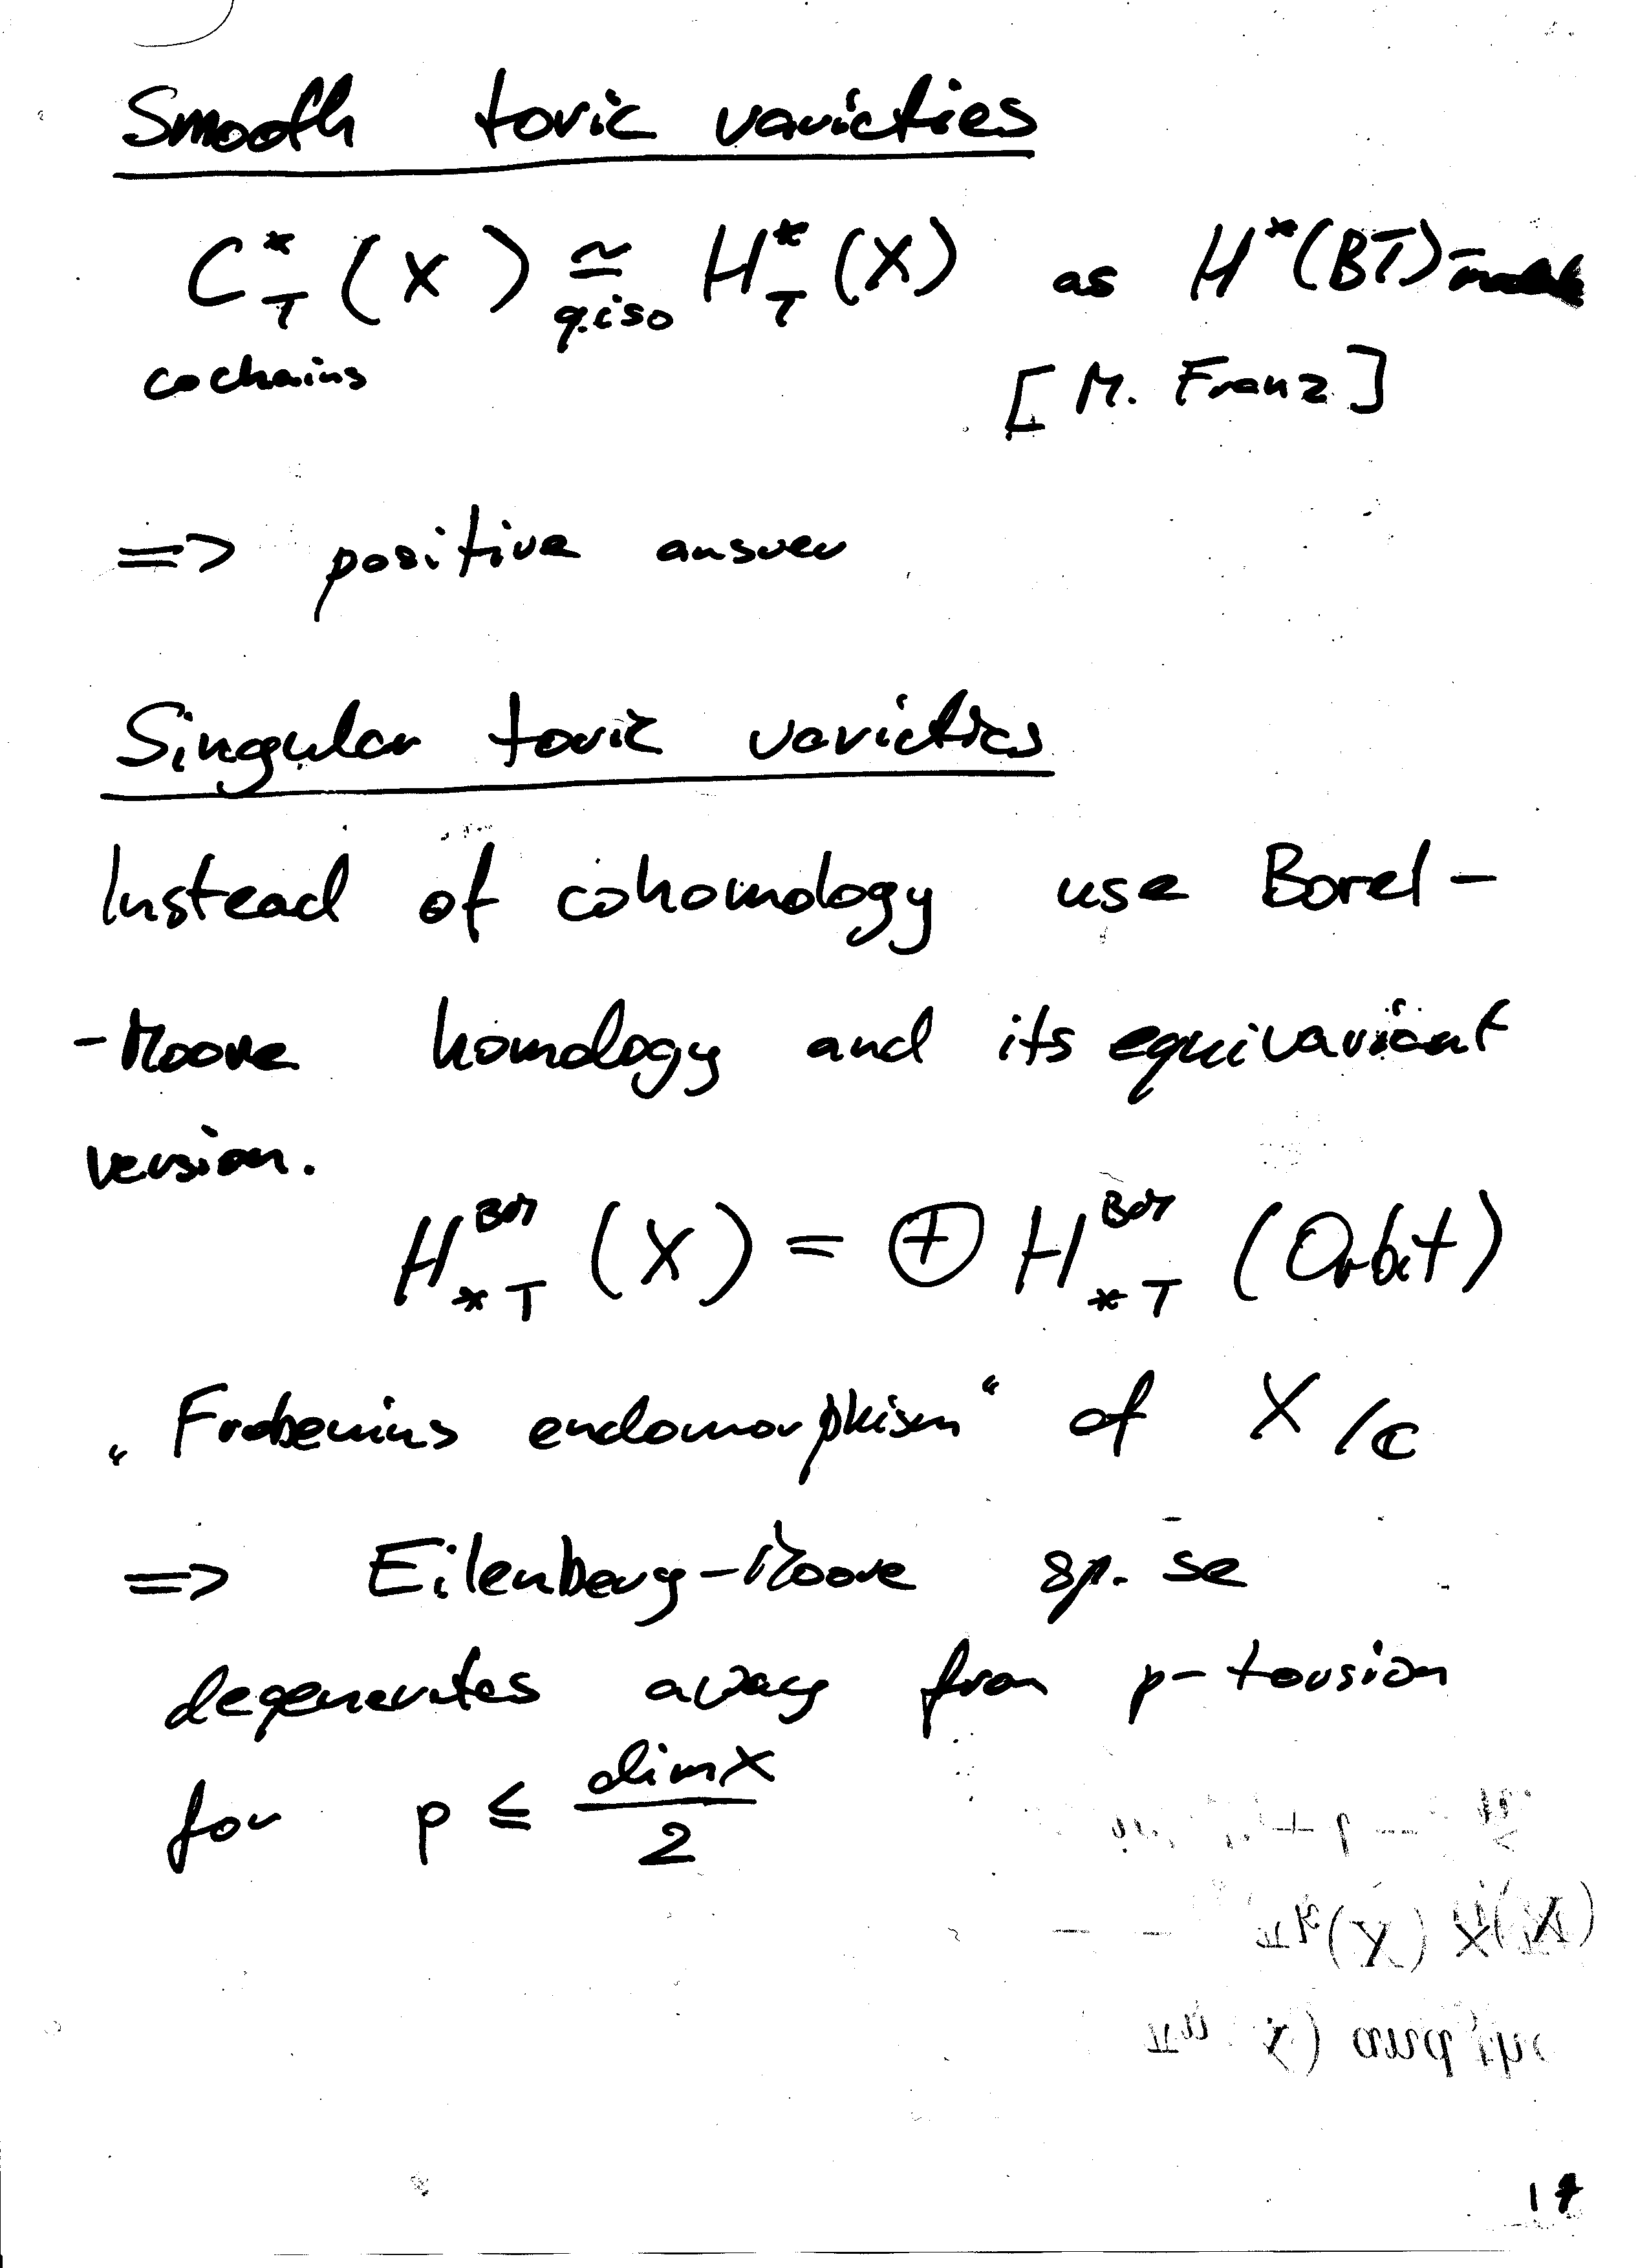 Smooth toric varieties
C*_T (X) ≃ H*_T (X) as H*(BT)-
q.iso
cochains [M. Franz]
=> positive answer
Singular toric varieties
Instead of cohomology use Borel-
-Moore homology and its equivariant
version.
H^{BM}_{*T} (X) = ⊕ H^{BM}_{*T} (Orbit)
„Frobenius endomorphism“ of X/ℂ
=> Eilenberg-Moore sp. se
degenerates away from p-torsion
for p ≤ dim X / 2
17